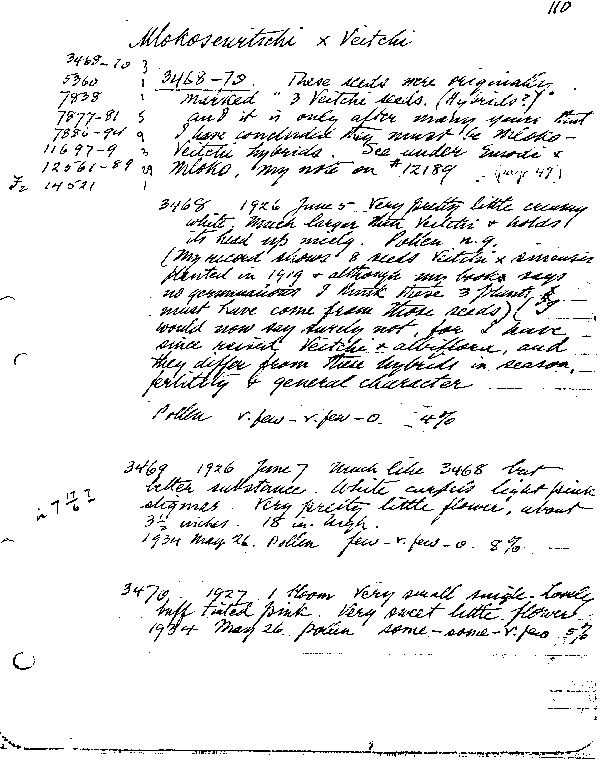 110
Mlokosewitschi x Veitchi
3468-70 3
5360 1
7838 1
7877-81 5
7886-94 9
11697-9 3
12561-89 29
F2 14521 1
3468-70. These seeds were originally
marked "3 Veitchi seeds. (Hybrids?)"
and it is only after many years that
I have concluded they must be Mloko-
Veitchi hybrids. See under Emodi x
Mloko, my note on #12189 (page 47)
3468 1926 June 5 Very pretty little creamy
white. Much larger than Veitchi & holds
its head up nicely. Pollen n.g.
(My record shows 8 seeds Veitchi x sinensis
planted in 1919 & although my book says
no germinations I think these 3 plants
must have come from those seeds) (I
would now say surely not, for I have
since raised Veitchi x albiflora, and
they differ from these hybrids in season,
fertility & general character
Pollen v. few - v. few - 0. 4%
3469 1926 June 7 Much like 3468 but
better substance. White carpels light pink
stigmas. Very pretty little flower, about
3 1/2 inches. 18 in. high.
1934 May 26. Pollen few - v. few - 0. 8%
3470 1927 1 bloom Very small single. Lovely
buff tinted pink. Very sweet little flower
1934 May 26 pollen some - some - v. few 5%